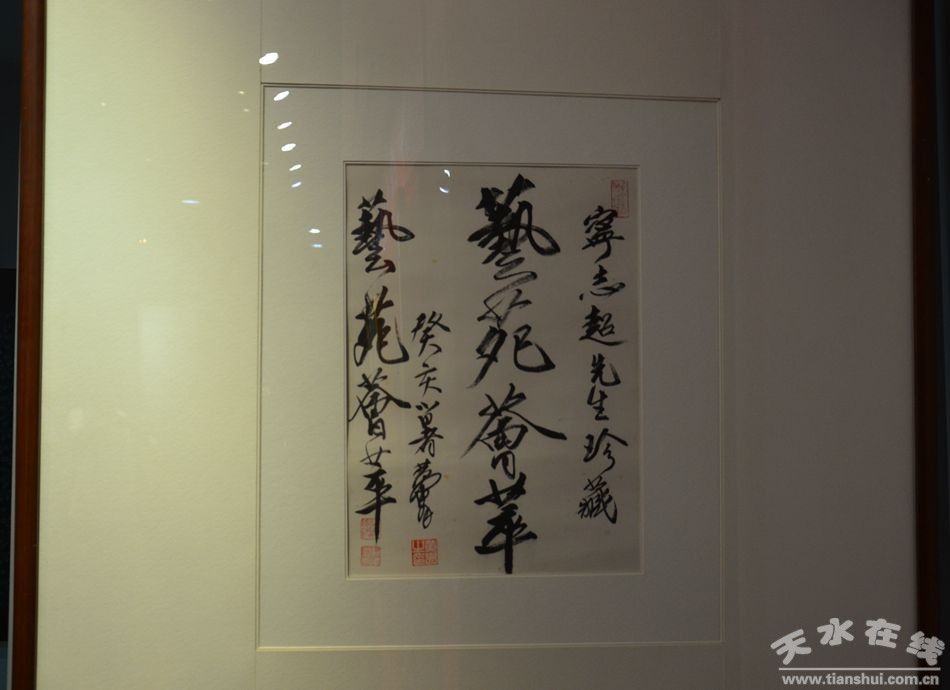 寧志超先生珍藏
藝苑薈萃
癸亥署
藝苑薈萃
天水在线
www.tianshui.com.cn